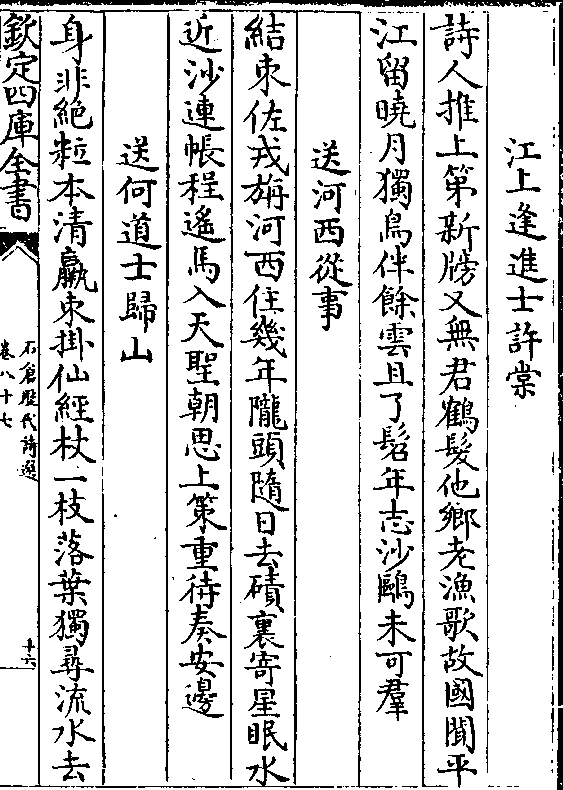 江上逢進士許棠
詩人推上第新牓又無君鶴髮他鄉老漁歌故國聞平
江留曉月獨鳥伴餘雲且了髫年志沙鷗未可羣
送河西從事
結束佐戎旃河西住幾年隴頭隨日去磧裏寄星眠水
近沙連帳程遙馬入天聖朝思上策重待奏安邊
送何道士歸山
身非絕粒本清羸束掛仙經杖一枝落葉獨尋流水去
欽定四庫全書
石倉歷代詩選
卷八十七
十六